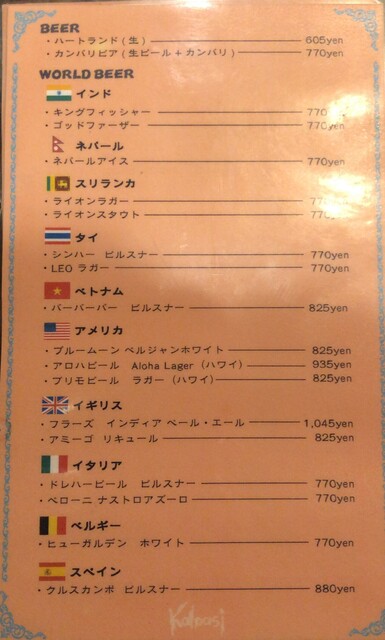 BEER
・ハートランド(生) 605yen
・カンパリビア(生ビール+カンパリ) 770yen
WORLD BEER
インド
・キングフィッシャー 770
・ゴッドファーザー 770yen
ネパール
・ネパールアイス 770yen
スリランカ
・ライオンラガー
・ライオンスタウト 770
タイ
・シンハー ピルスナー 770yen
・LEO ラガー 770yen
ベトナム
・バーバーバー ピルスナー 825yen
アメリカ
・ブルームーン ベルジャンホワイト 825yen
・アロハビール Aloha Lager (ハワイ) 935yen
・プリモビール ラガー (ハワイ) 825yen
イギリス
・フラーズ インディア ペール・エール 1,045yen
・アミーゴ リキュール 825yen
イタリア
・ドレハービール ピルスナー 770yen
・ペローニ ナストロアズーロ 770yen
ベルギー
・ヒューガルデン ホワイト 770yen
スペイン
・クルスカンポ ピルスナー 880yen